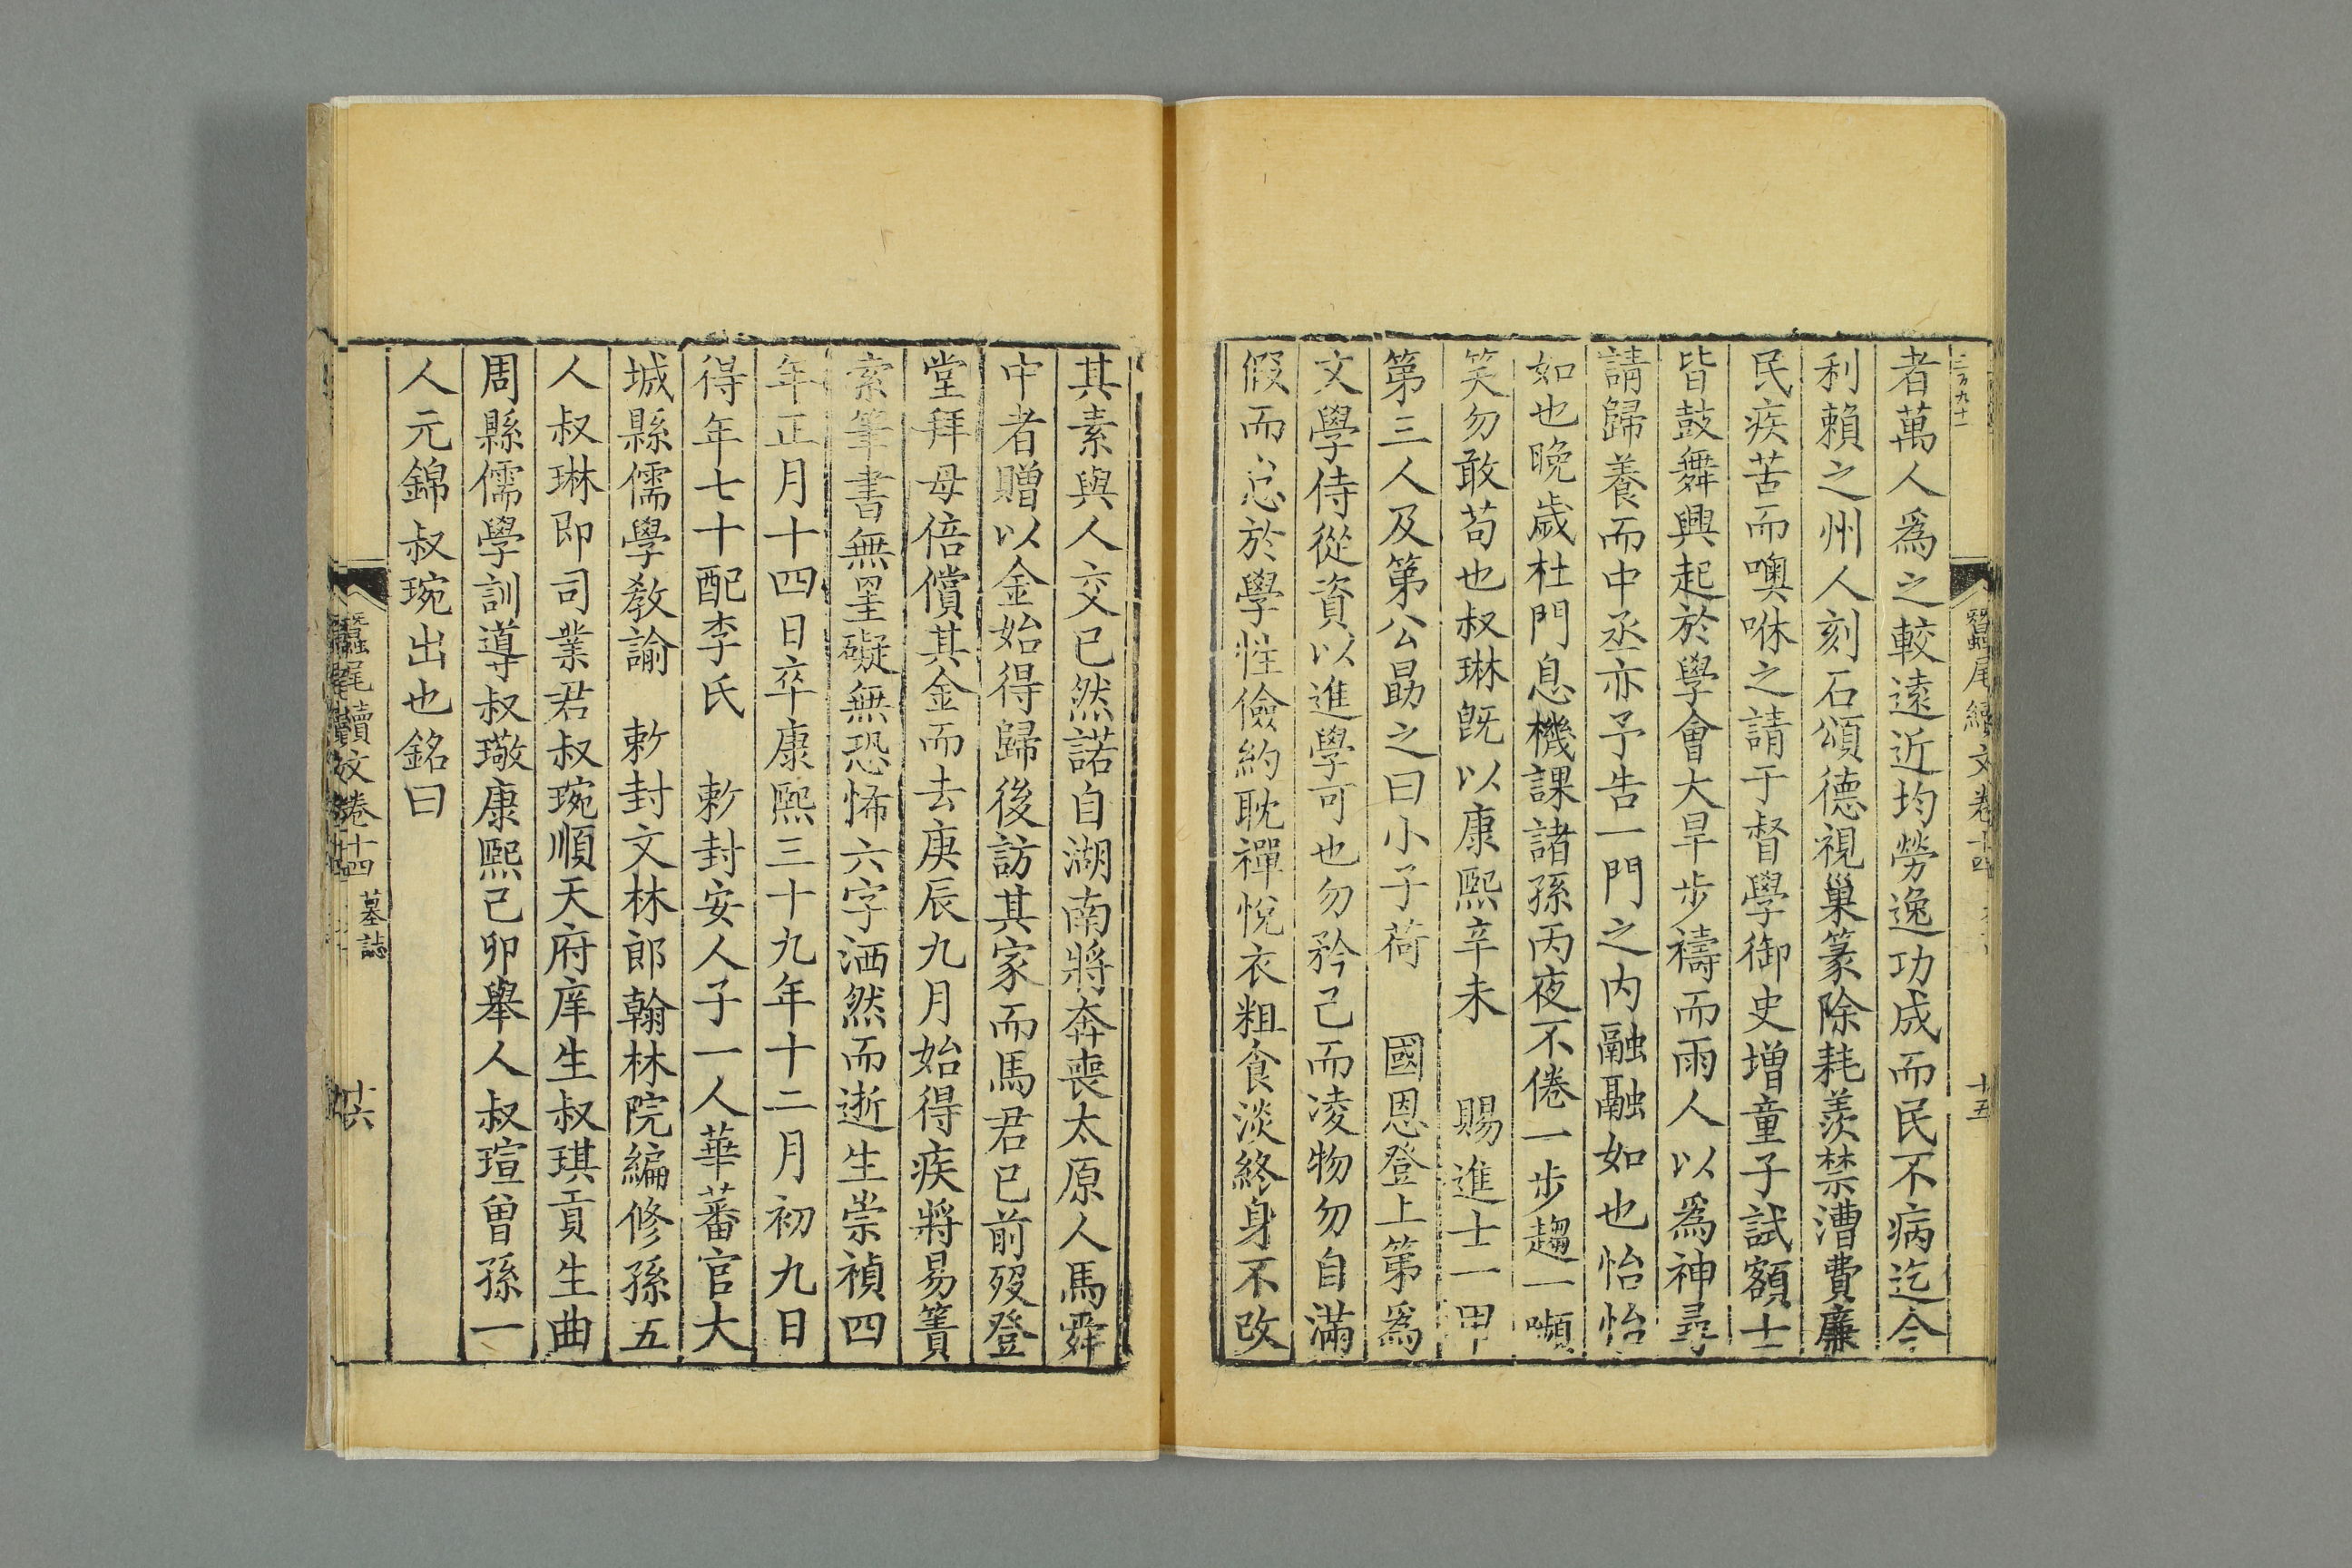 蠶尾續文卷十四
十五
者萬人爲之較遠近均勞逸功成而民不病迄今
利賴之州人刻石頌德視巢篆除耗羨禁漕費廉
民疾苦而噢咻之請于督學御史增童子試額士
皆鼓舞興起於學會大旱步禱而雨人以爲神尋
請歸養而中丞亦予告一門之内融融如也怡怡
如也晚歲杜門息機課諸孫丙夜不倦一步趨一嚬
笑勿敢苟也叔琳旣以康熙辛未 賜進士一甲
第三人及第公勗之曰小子荷 國恩登上第爲
文學侍從資以進學可也勿矜己而凌物勿自滿
假而怠於學性儉約耽禪悅衣粗食淡終身不改
其素與人交已然諾自湖南將奔喪太原人馬舜
中者贈以金始得歸後訪其家而馬君已前歿登
堂拜母倍償其金而去庚辰九月始得疾將易簀
索筆書無罣礙無恐怖六字洒然而逝生崇禎四
年正月十四日卒康熙三十九年十二月初九日
得年七十配李氏 敕封安人子一人華蕃官大
城縣儒學教諭 敕封文林郎翰林院編修孫五
人叔琳即司業君叔琬順天府庠生叔琪貢生曲
周縣儒學訓導叔璥康熙己卯舉人叔瑄曾孫一
人元錦叔琬出也銘曰
蠶尾續文卷十四 墓誌
十六